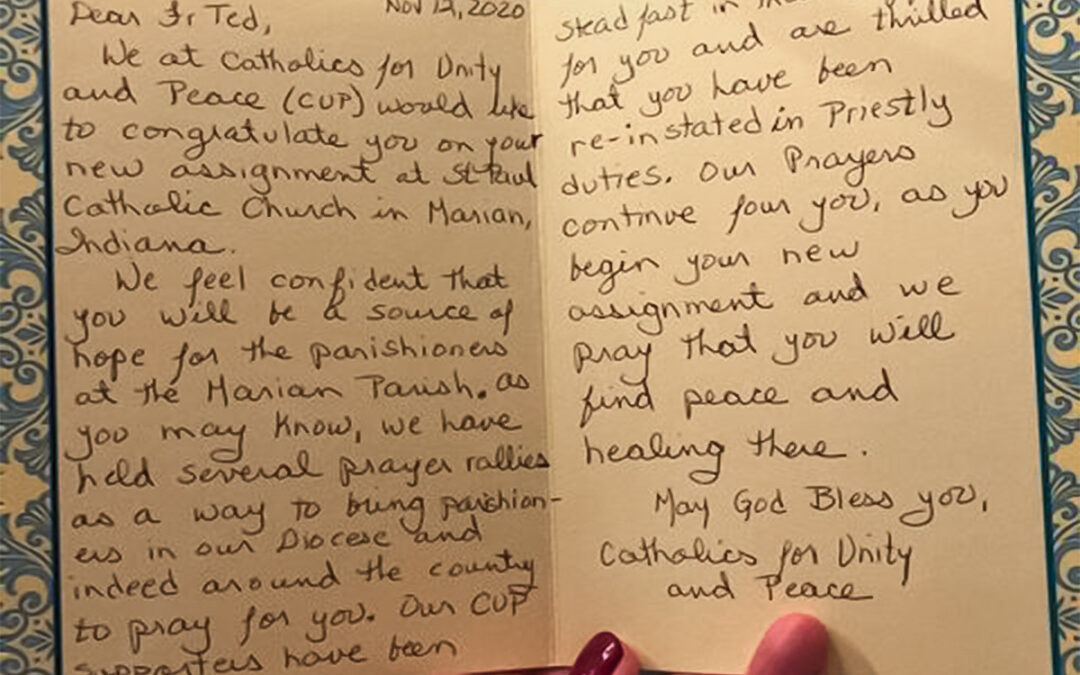 Dear Fr Ted,
Nov 12, 2020
We at Catholics for Unity
and Peace (CUP) would like
to congratulate you on your
new assignment at St Paul
Catholic Church in Marian,
Indiana.
We feel confident that
you will be a source of
hope for the parishioners
at the Marian Parish. as
you may know, we have
held several prayer rallies
as a way to bring parishion-
ers in our Diocese and
indeed around the country
to pray for you. Our CUP
supporters have been
steadfast in
for you and are thrilled
that you have been
re-instated in Priestly
duties. Our Prayers
continue four you, as you
begin your new
assignment and we
pray that you will
find peace and
healing there.
May God Bless you,
Catholics for Unity
and Peace